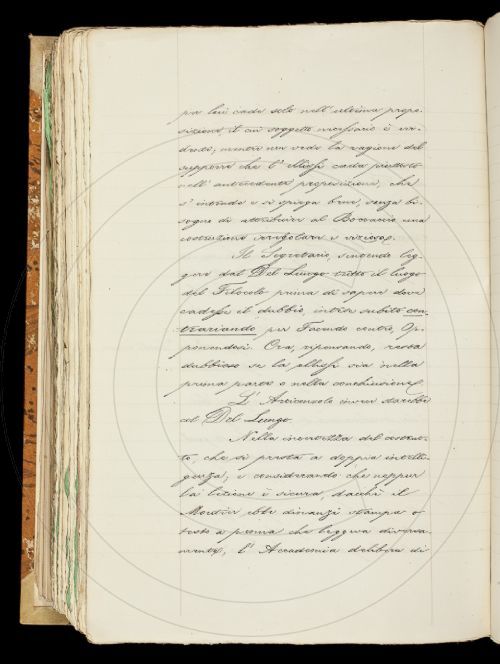 per lui cade solo nell'ultima propo-
sizione il cui soggetto necessario è ve-
duto; mentre non vede la ragione del
supporre che l'ellissi cada piuttosto
nell'antecedente proposizione, che
s'intende e si spiega bene, senza bi-
sogno di attribuire al Boccaccio una
costruzione irregolare e viziosa.
Il Segretario, sentendo leg-
gere dal Del Lungo tutto il luogo
del Filocolo prima di saper dove
cadesse il dubbio, intese subito con-
trariando per Facendo contro, Op-
ponendosi. Ora, ripensando, resta
dubbioso se la ellissi sia nella
prima parte o nella conchiusione.
L'Arciconsolo invece starebbe
col Del Lungo.
Nella incertezza del costrut-
to, che si presta a doppia intelli-
genza; e considerando che neppur
la lezione è sicura, dacchè il
Moutier ebbe dinanzi stampa o
testo a penna che leggeva diversa-
mente, l'Accademia delibera di